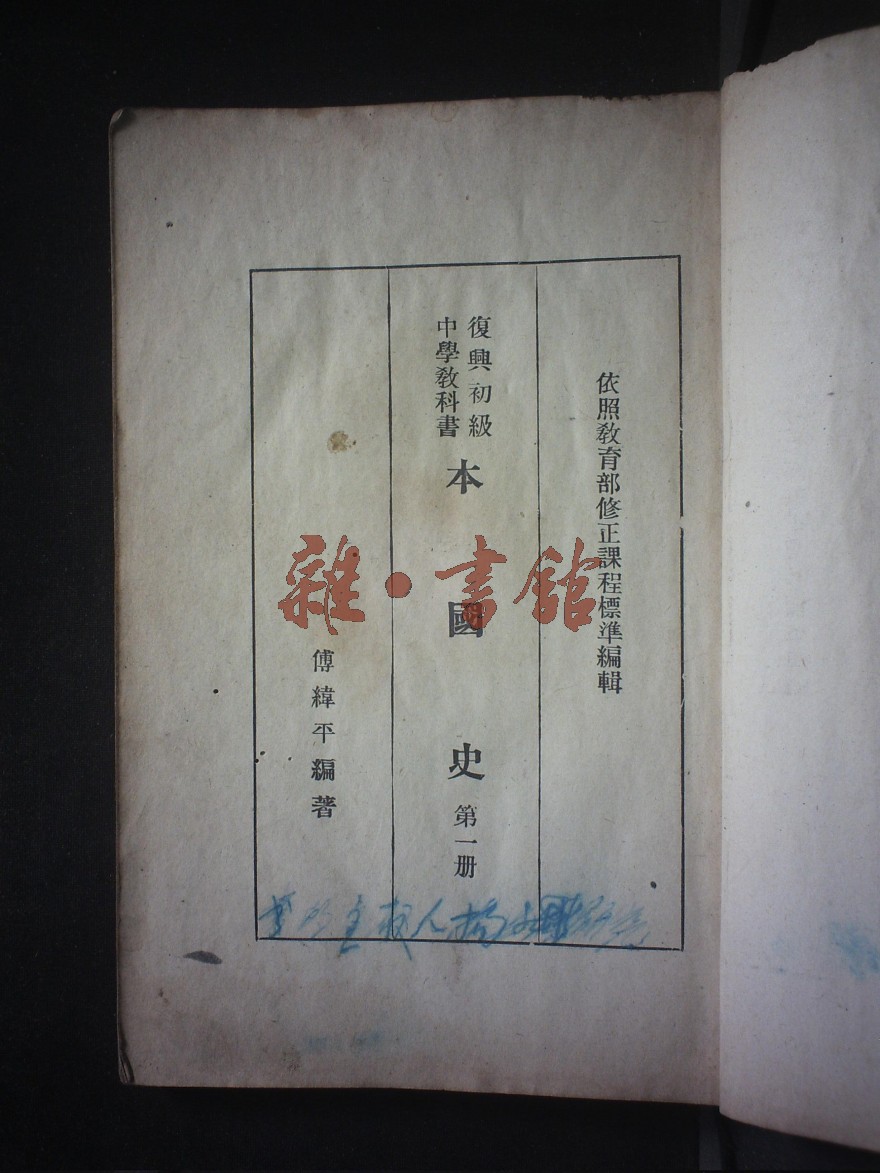 依照教育部修正課程標準編輯
復興初級
中學教科書
本國史 第一册
傅緯平編著
雜·書館